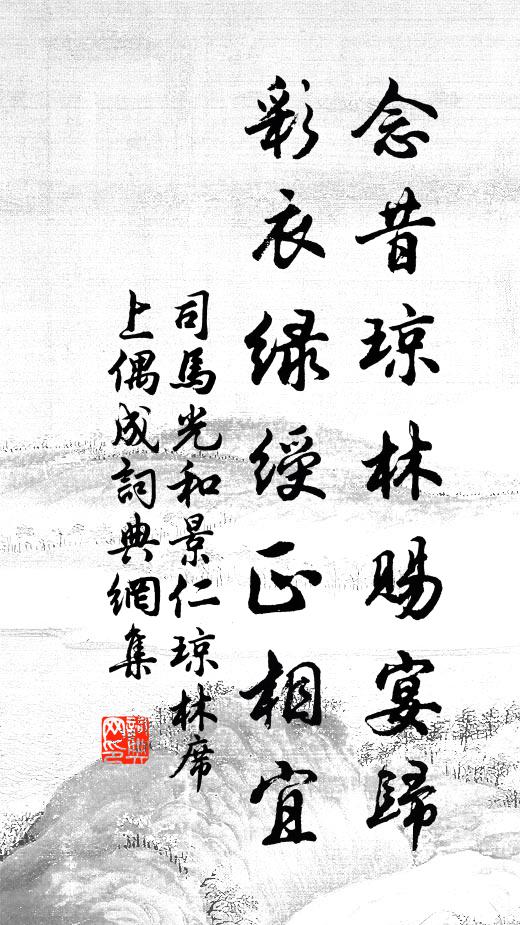 念昔琼林賜宴歸
彩衣绿綬正相宜
司馬光和景仁琼林席
上偶成詞典網集
詞典網印